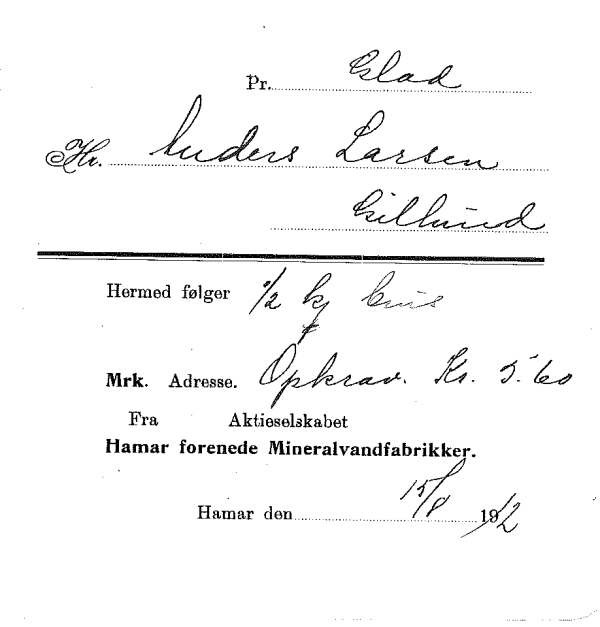 Pr. Glad
Hr. Anders Larsen
Gillund
Hermed følger 1/2 kj
Mrk. Adresse. Opkrav. Kr. 5.60
Fra Aktieselskabet
Hamar forenede Mineralvandfabrikker.
Hamar den 15/8 1912